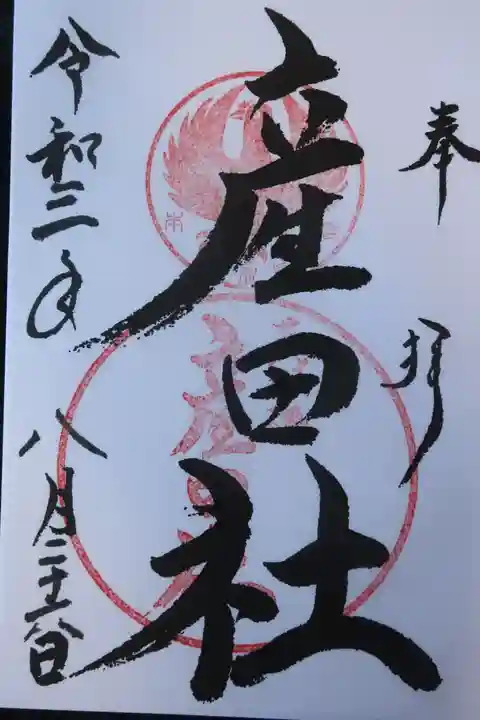 奉拝
産田社
令和二年
八月二十六日